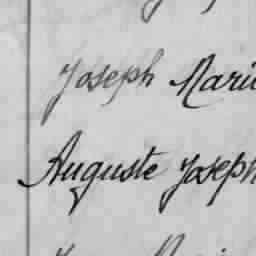 Joseph Marie
Auguste Joseph